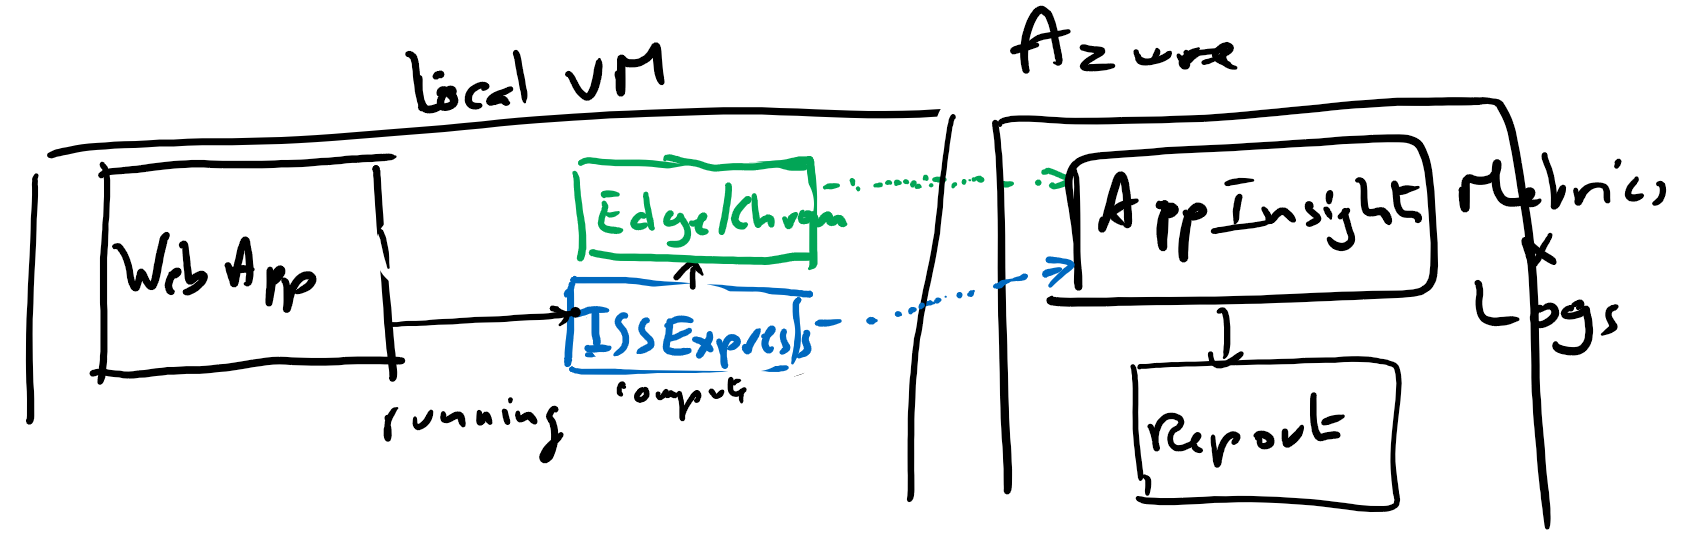 Local VM
Azure
Web App
Edge/Chrom
ISSExpress
compute
running
App Insight
Metrics
&
Logs
Report